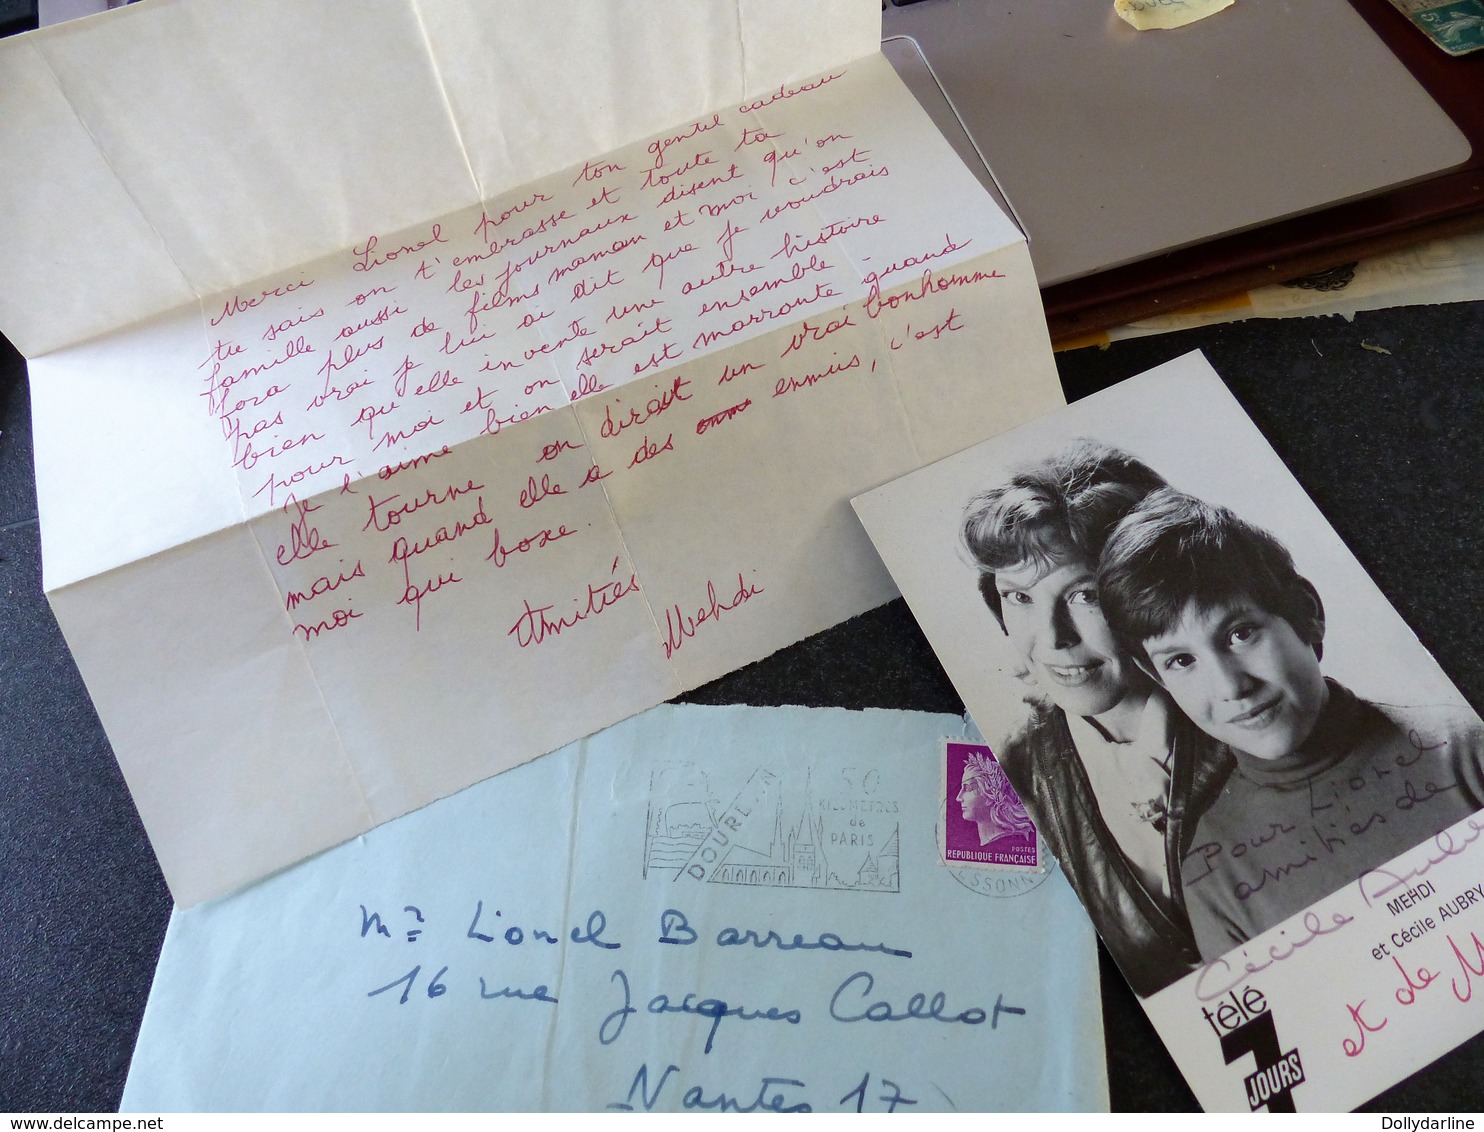 Merci Lionel pour ton gentil cadeau
tu sais on t'embrasse et toute ta
famille aussi les journaux disent qu'on
fera plus de films maman et moi c'est
pas vrai je lui ai dit que je voudrais
bien qu'elle invente une autre histoire
pour moi et on serait ensemble.
Je l'aime bien elle est marrante quand
elle tourne on dirait un vrai bonhomme
mais quand elle a des ennuis, c'est
moi qui boxe.
Amitiés
Mehdi
DOURDAN
50
KILOMETRES
de
PARIS
POSTES
REPUBLIQUE FRANÇAISE
ESSONNE
Mr Lionel Barreau
16 rue Jacques Callot
Nantes 17
Pour Lionel
amitiés de
Cécile Aubry
MEHDI
et Cécile AUBRY
et de M
télé
7
JOURS
Dollydarline